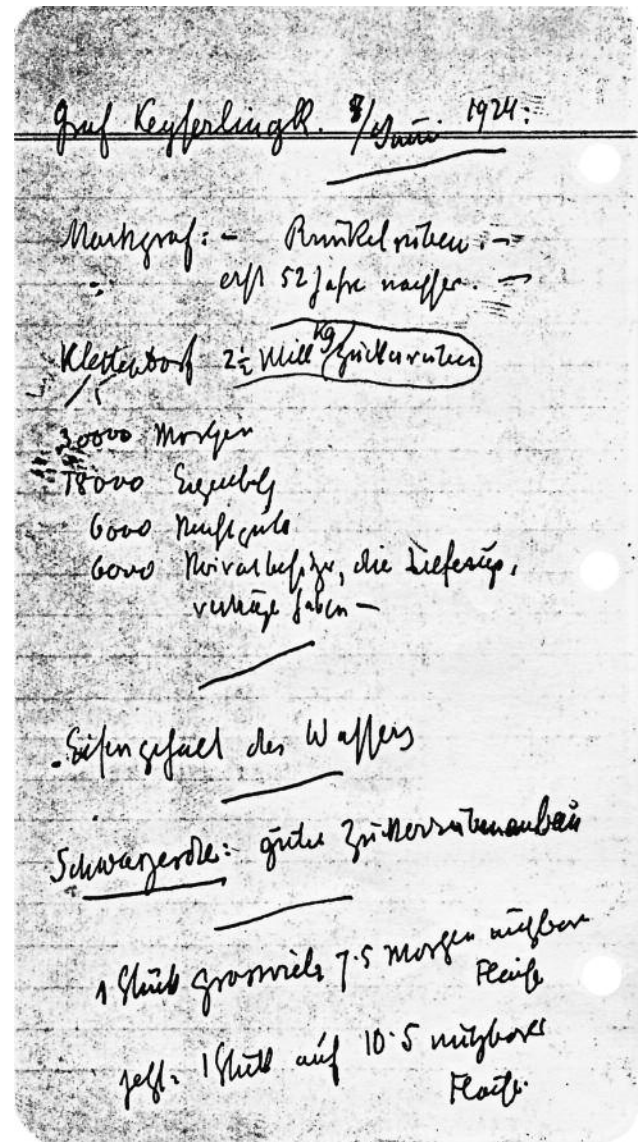 Graf Keyserlingk. 8/Juni 1924:
Markgraf: - Runkelrüben. -
erst 52 Jahre nachher. -
Klettendorf 2½ Mill Kg Zuckerrüben
30000 Morgen
18000 Eigenbes
6000 Pachtgute
6000 Privatbesitzer, die Lieferungs,
verträge haben -
Eisengehalt des Wassers
Schwarzerde: guter Zuckerrübenanbau
1 Stück grossvieh 7.5 Morgen nutzbare
Fläche
jetzt: 1 Stück auf 10.5 nutzbarer
Fläche.